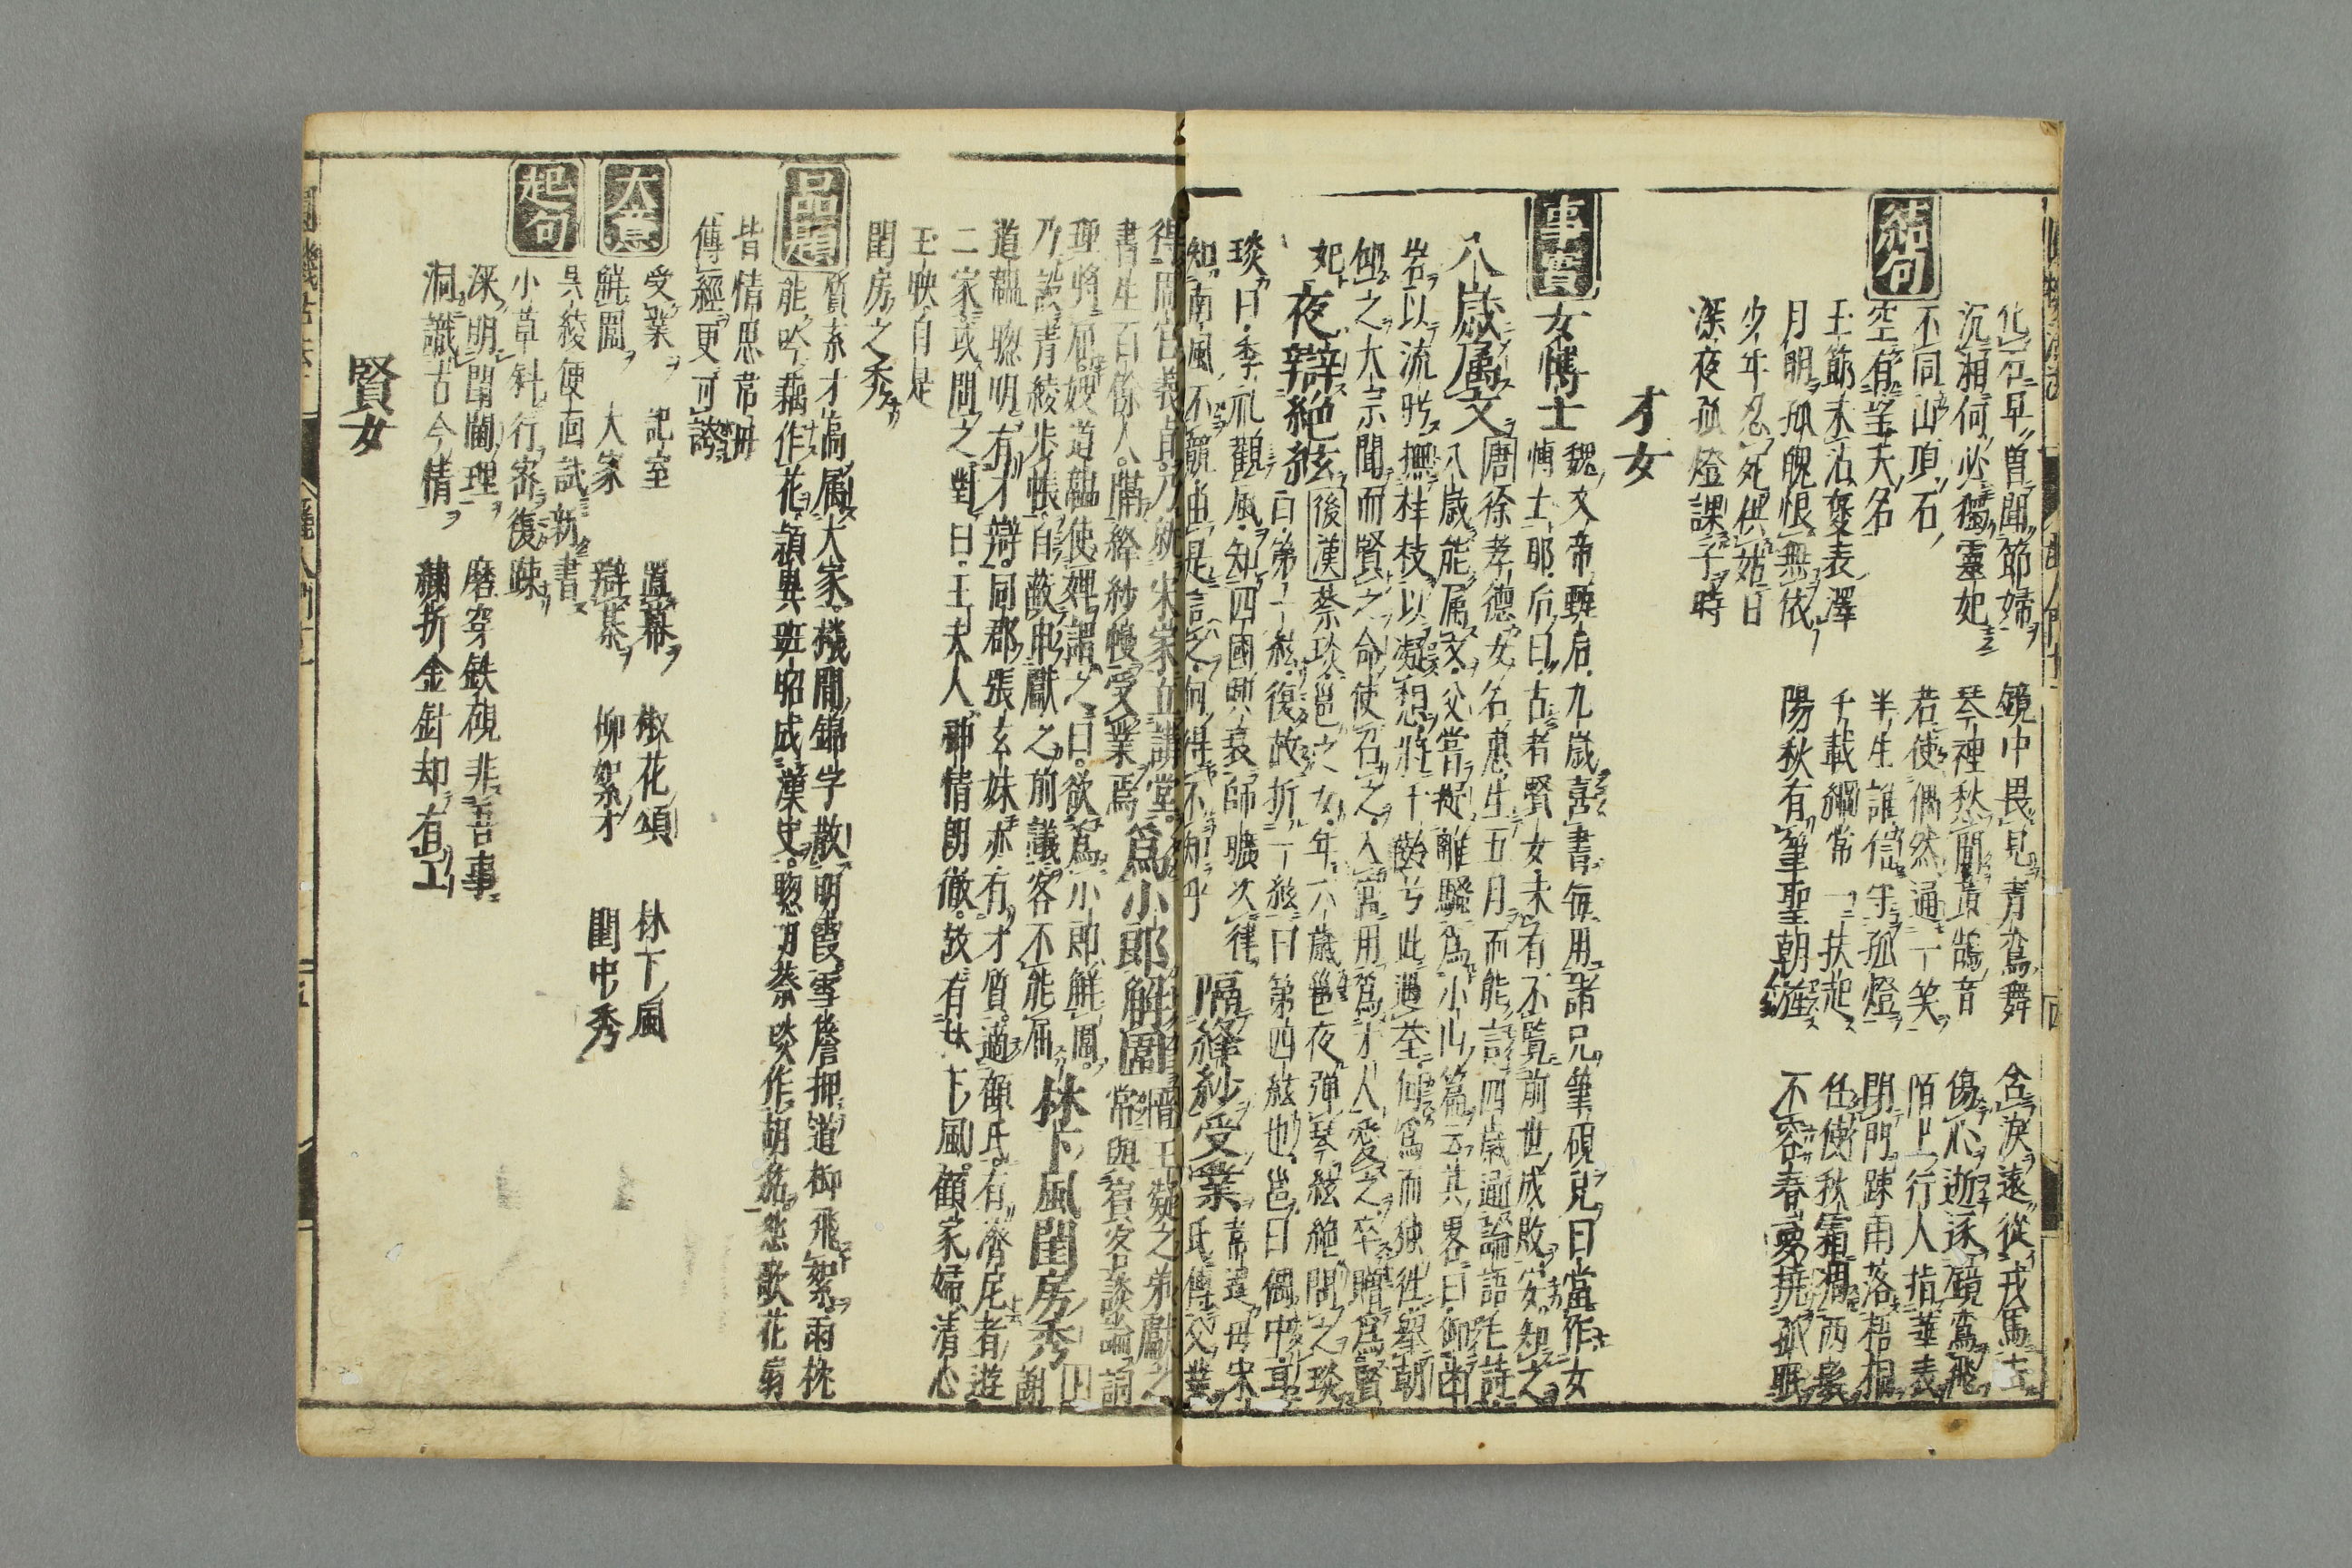 化石早曽聞節婦 鏡中畏見青鸞舞 含淚遠從戎馬去
沉湘何必獨靈妃 琴裡愁聞黃鵠音 傷心逝逐鏡鸞飛
結句
不同山頂石 若使偶然通一笑 陌上行人指華表
空有望夫名 半生誰信守孤燈 閉門踈雨落梧桐
玉節未沾褒表澤 千載綱常一扶起 任使秋霜凋兩鬢
月明孤魄恨無依 陽秋有筆聖朝 不容春夢擾孤眠
少年忍死供姑日
深夜孤燈課子時
才女
事實
女博士 魏文帝甄后九歲喜書每用諸兄筆硯兄曰當作女
博士耶后曰古者賢女未有不覽前世成敗安知之
八歲属文 唐徐孝德女名惠生五月而能言四歲通論語毛詩
八歲能属文父嘗擬離騷為小山篇云其畧曰仰幽
岩以流盻撫桂枝以凝想將千齡兮此遇荃何為而独徃舉朝
俶之太宗聞而賢之命使召之入宮用為才人愛之卒贈為賢
妃 夜辯絶絃 後漢蔡琰邕之女年六歲邕夜弾琴絃絶問之琰
曰第一絃復故折一絃曰第四絃也邕曰偶中耳
琰曰季札觀風知四國興衰師曠次律 隔絳紗受業 常遑母宋
知南風不競由是言之何得不知乎 氏傳父業
得周官義貞乃就宋家立講堂 為小郎解圍 晉王凝之弟獻之
書生百餘人隔絳紗幔受業焉 常與賓客談論詞
理將屈嫂道韞使婢謂之曰欲為小郎解圍
乃設青綾步帳自蔽申獻之前議客不能屈 林下風閨房秀 謝
道韞聦明有才辯同郡張玄妹亦有才質適顧氏有濟尼者遊
二家或問之對曰王夫人神情朗徹故有林下風顧家婦清心
玉映自是
閨房之秀
品題
質素才高属大家機間錦字散明霞雪簷押道柳飛絮雨枕
能吟藕作花頴異班昭成漢史聦明蔡琰作胡笳悲歌花扇
皆情思常毋
傅經更可誇
大意
受業 記室 置幕 椒花頌 林下風
解圍 大家 辯琴 柳絮才 閨中秀
起句
吳綾便面試新書
小草斜行密復踈
深明閨閫理 磨穿鉄硯非吾事
洞識古今情 繡折金針却有工
賢女